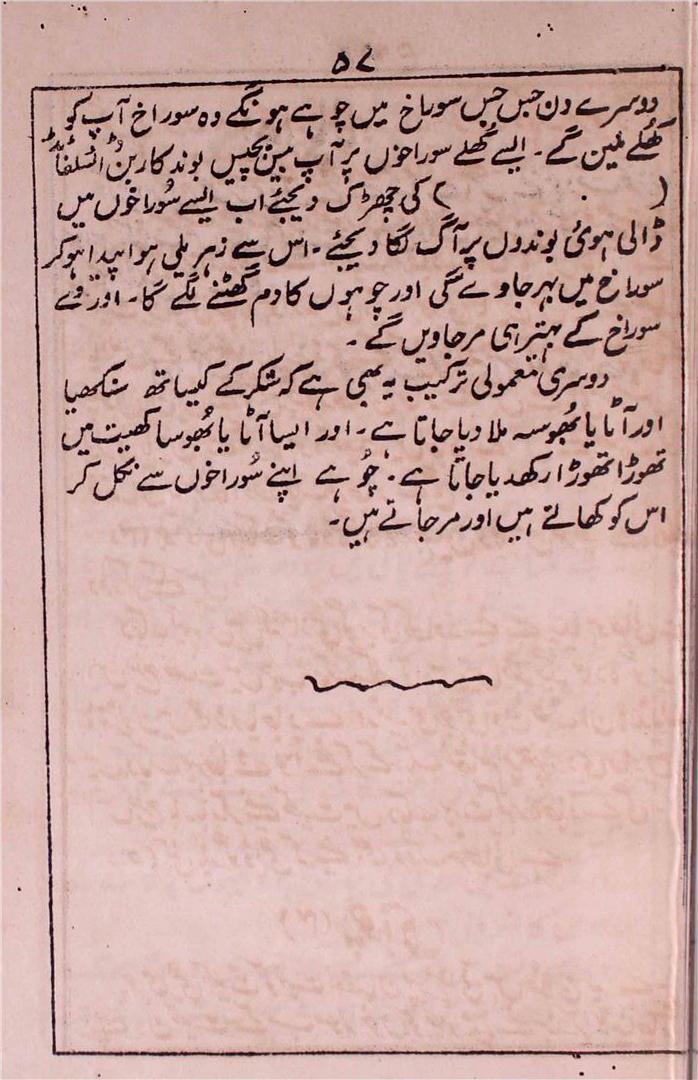 ۵۷
دوسرے دن جس جس سوراخ میں چوہے ہونگے وہ سوراخ آپ کو
کُھلے ملین گے۔ ایسے کُھلے سوراخوں پر آپ بیس پچیس بوند کاربن ڈائسلفائڈ
( ) کی چھڑک دیجئے اب ایسے سُوراخوں میں
ڈالی ہوئی بوندوں پر آگ لگا دیجئے۔ اس سے زہریلی ہوا پیدا ہو کر
سوراخ میں بھر جاوے گی اور چوہوں کا دم گُھٹنے لگے گا۔ اور وے
سوراخ کے بہتر ہی مر جاویں گے۔
دوسری معمولی ترکیب یہ بھی ہے کہ شکر کے کیساتھ سنکھیا
اور آٹا یا بُھوسہ ملا دیا جاتا ہے۔ اور ایسا آٹا یا بُھوسا کھیت میں
تھوڑا تھوڑا رکھدیا جاتا ہے۔ چُوہے اپنے سُوراخوں سے نکل کر
اس کو کھالتے ہیں اور مرجاتے ہیں۔